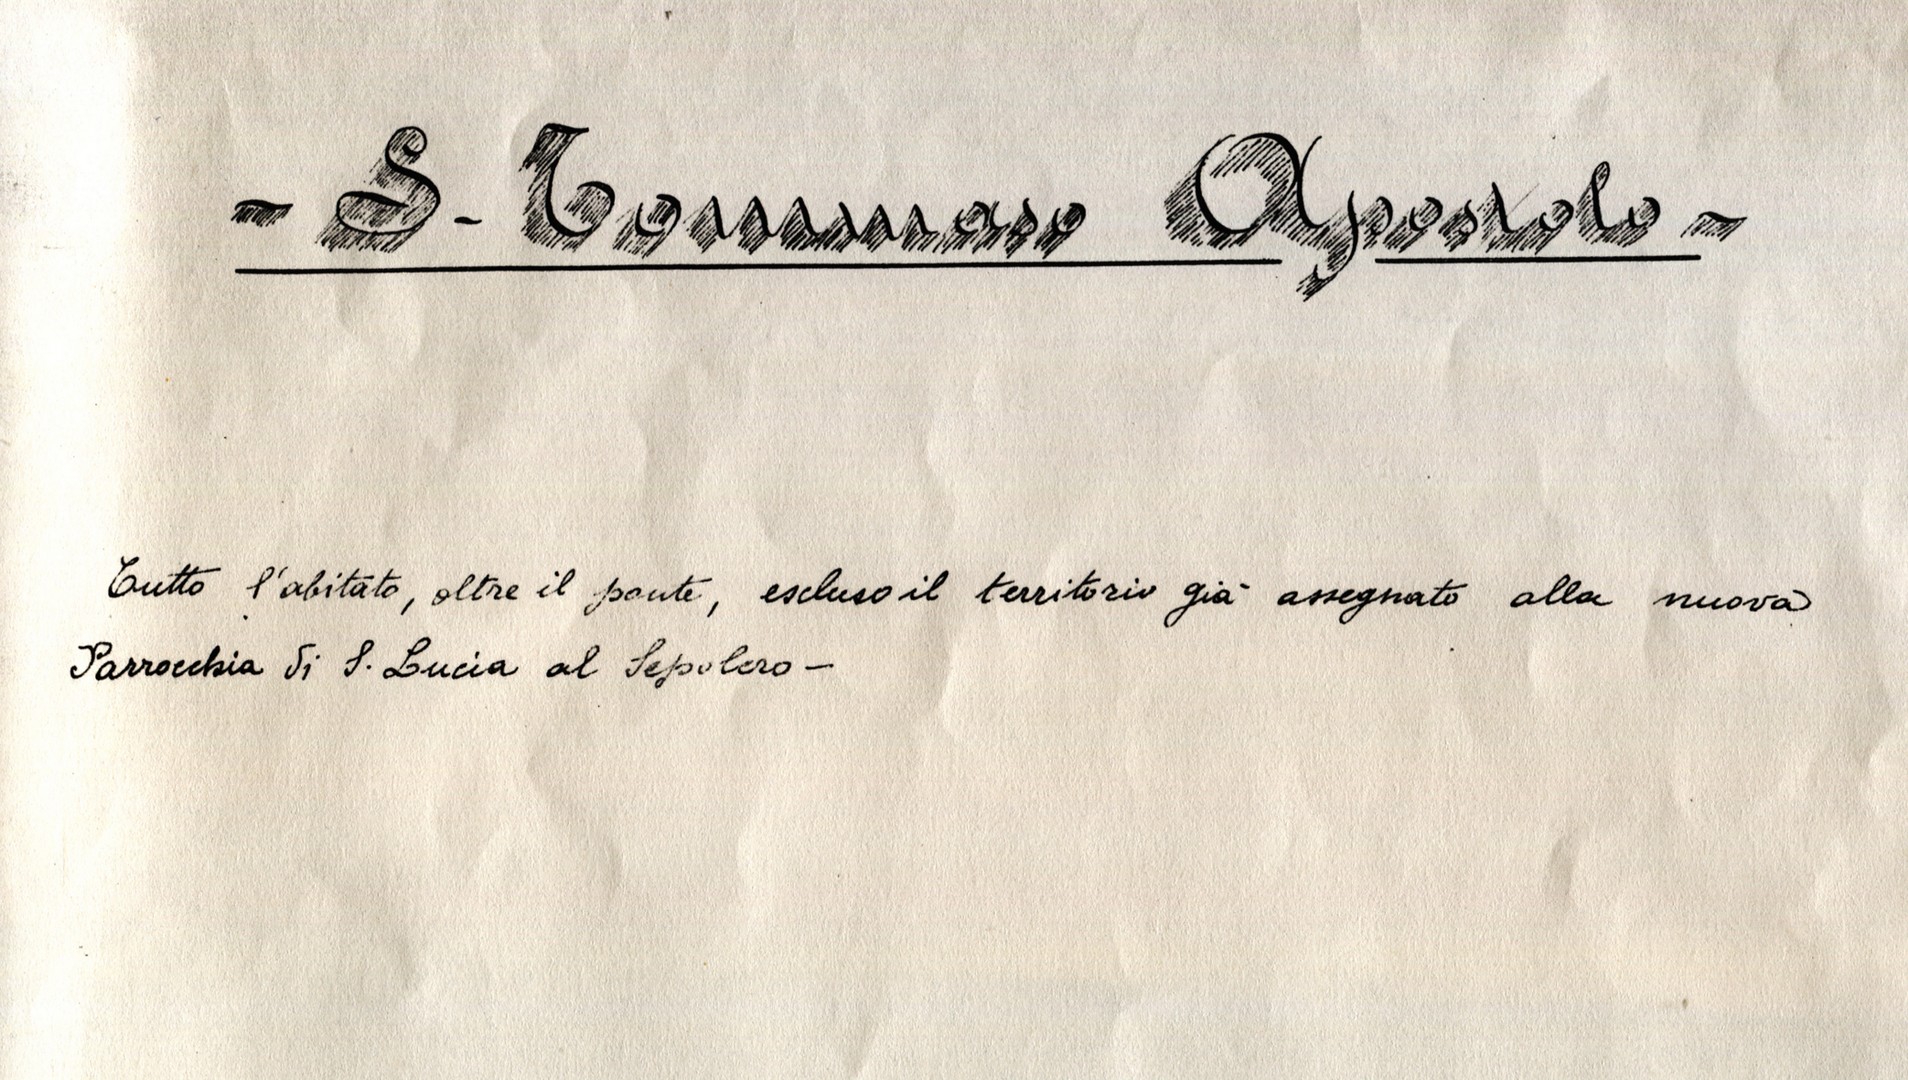 - S. Tommaso Apostolo -
Tutto l'abitato, oltre il ponte, escluso il territorio già assegnato alla nuova
Parrocchia di S. Lucia al Sepolcro -